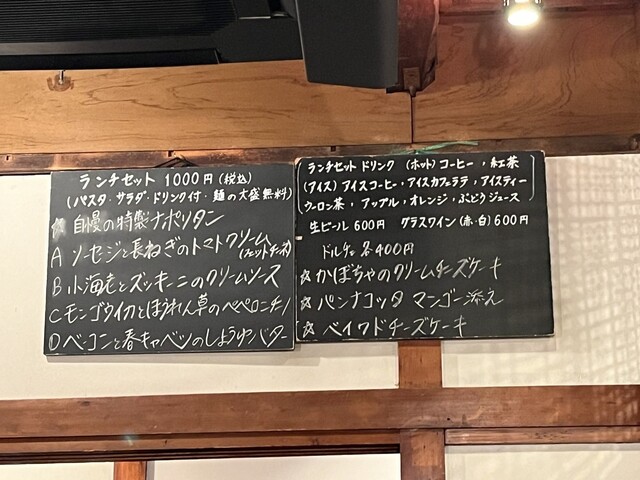 ランチセット 1000円(税込)
(パスタ・サラダ・ドリンク付・麺の大盛無料)
☆ 自慢の特製ナポリタン
A ソーセジと長ねぎのトマトクリーム
(フェットチーネ)
B 小海老とズッキーニのクリームソース
C モンゴウイカとほうれん草のペペロンチーノ
D ベーコンと春キャベツのしょうゆバター
ランチセット ドリンク (ホット) コーヒー , 紅茶
(アイス) アイスコーヒー , アイスカフェラテ , アイスティー
ウーロン茶 , アップル , オレンジ , ぶどうジュース
生ビール 600円 グラスワイン (赤・白) 600円
ドルチェ 各400円
☆ かぼちゃのクリームチーズケーキ
☆ パンナコッタ マンゴー添え
☆ ベイクドチーズケーキ